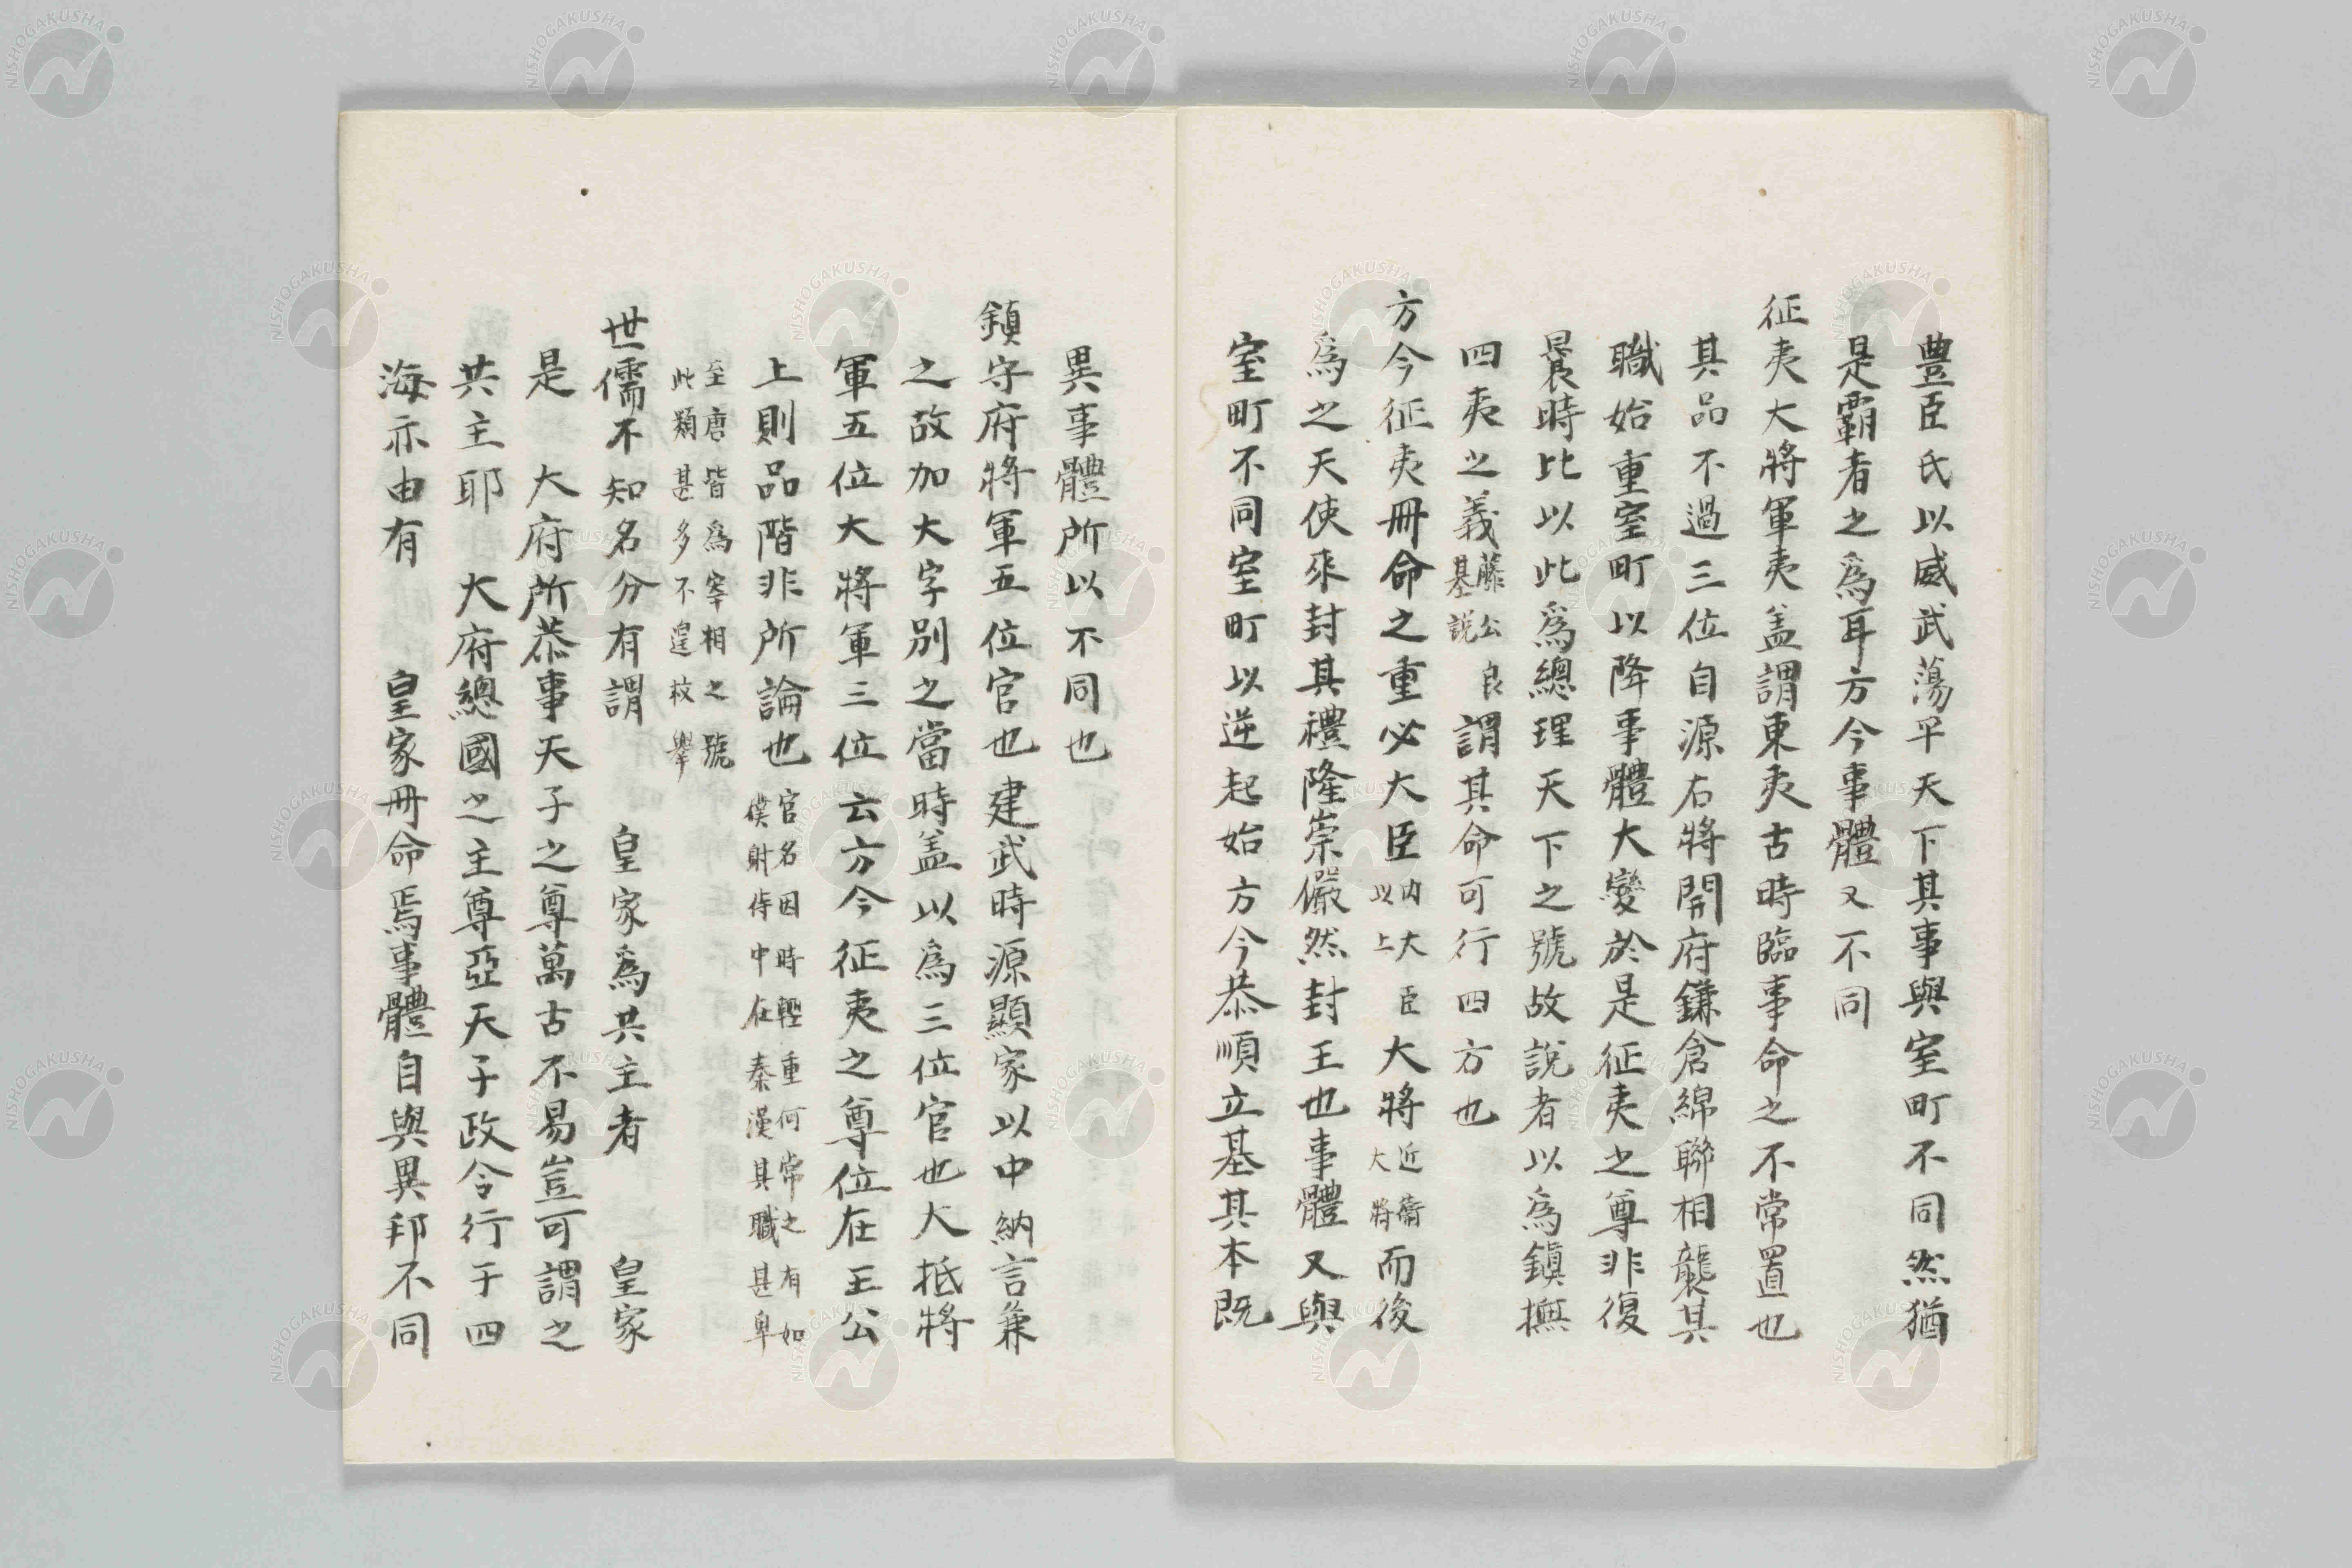 豊臣氏以威武蕩平天下其事與室町不同然猶
是霸者之爲耳方今事體又不同
征夷大將軍夷盖謂東夷古時臨事命之不常置也
其品不過三位自源右將開府鎌倉綿聯相襲其
職始重室町以降事體大變於是征夷之尊非復
曩時比以此爲總理天下之號故説者以爲鎮撫
四夷之義藤公良基説謂其命可行四方也
方今征夷冊命之重必大臣内大臣以上大將近衛大將而後
爲之天使來封其禮隆崇儼然封王也事體又與
室町不同室町以逆起始方今恭順立基其本既
異事體所以不同也
鎮守府將軍五位官也建武時源顯家以中納言兼
之故加大字別之當時盖以爲三位官也大抵將
軍五位大將軍三位云方今征夷之尊位在王公
上則品階非所論也官名因時輕重何常之有如僕射侍中在秦漢其職甚卑
至唐皆爲宰相之號此類甚多不遑枚擧
世儒不知名分有謂 皇家爲共主者 皇家
是 大府所恭事天子之尊萬古不易豈可謂之
共主耶 大府總國之主尊亞天子政令行于四
海亦由有 皇家冊命焉事體自與異邦不同
NISHOGAKUSHA